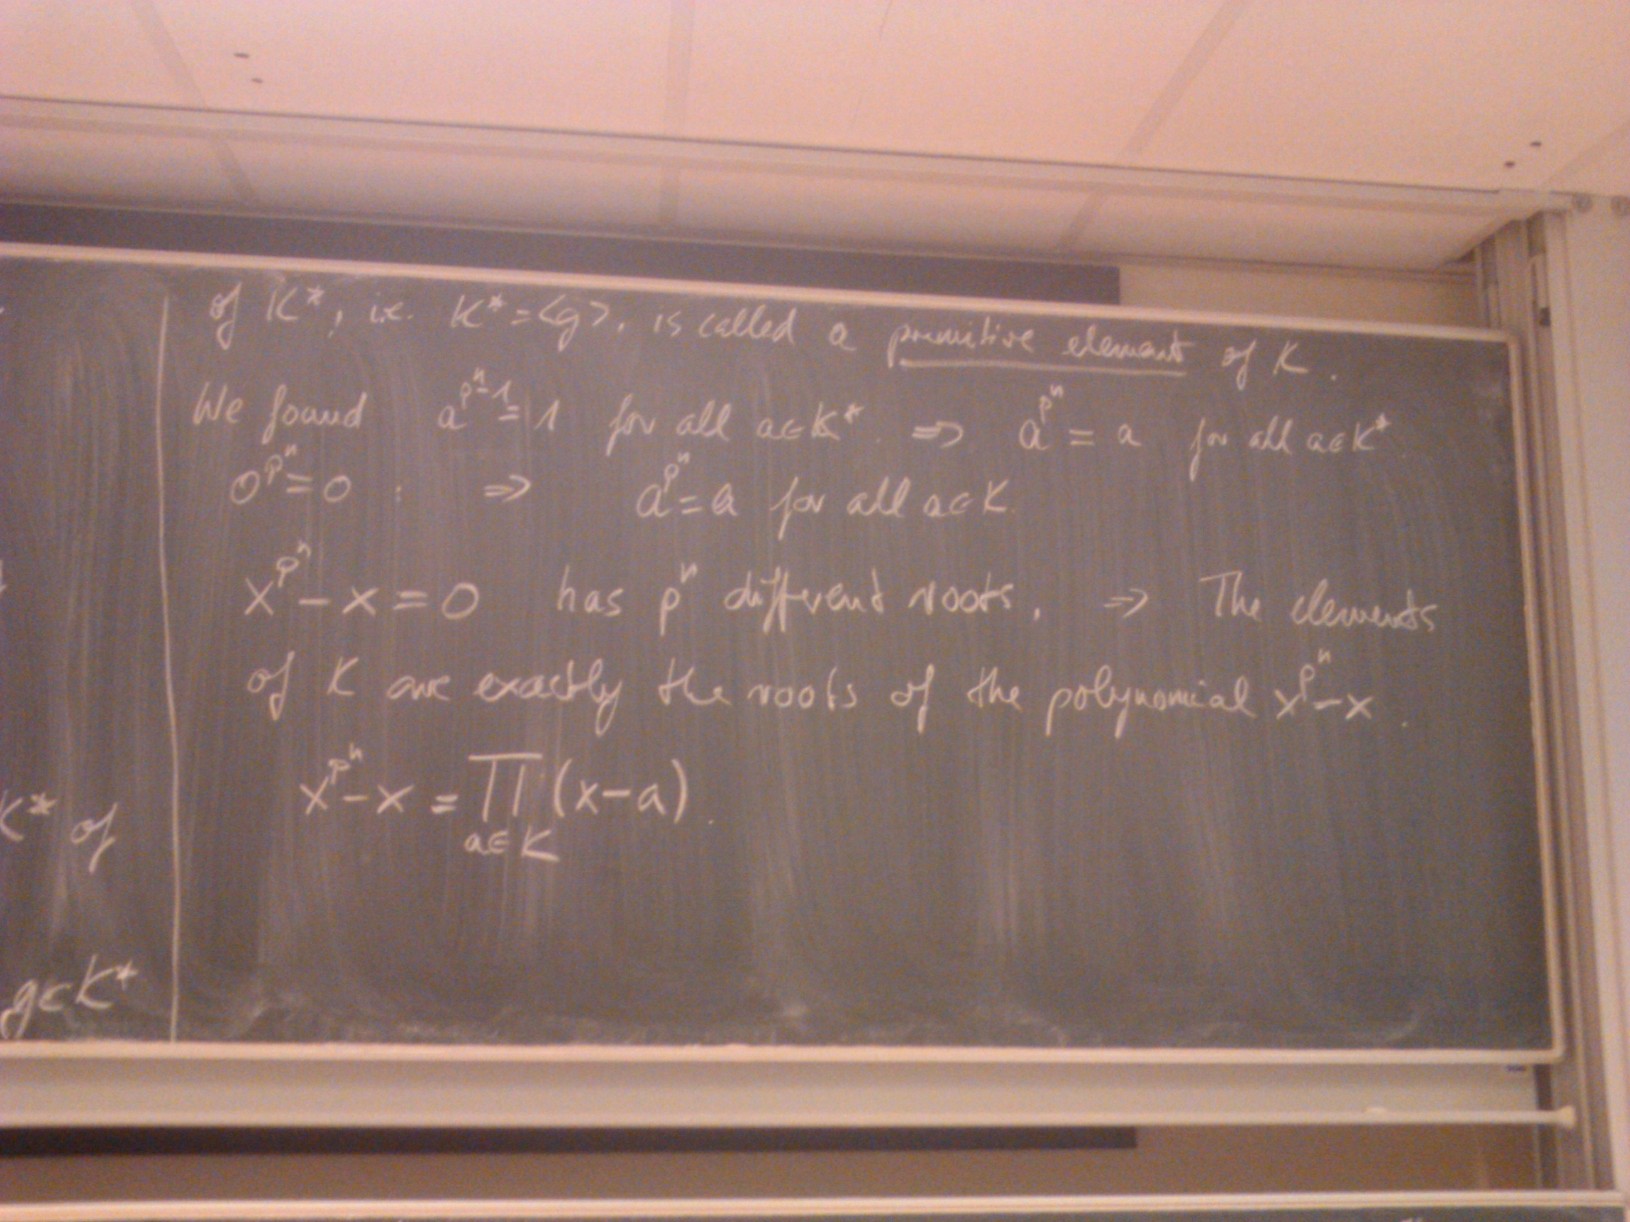 K* of
g∈K*
of K*, i.e. K* = <g>, is called a primitive element of K.
We found a^{p^n-1} = 1 for all a∈K*. ⇒ a^{p^n} = a for all a∈K*.
0^{p^n} = 0 . ⇒ a^{p^n} = a for all a∈K.
x^{p^n} - x = 0 has p^n different roots. ⇒ The elements
of K are exactly the roots of the polynomial x^{p^n} - x.
x^{p^n} - x = ∏_{a∈K} (x-a).